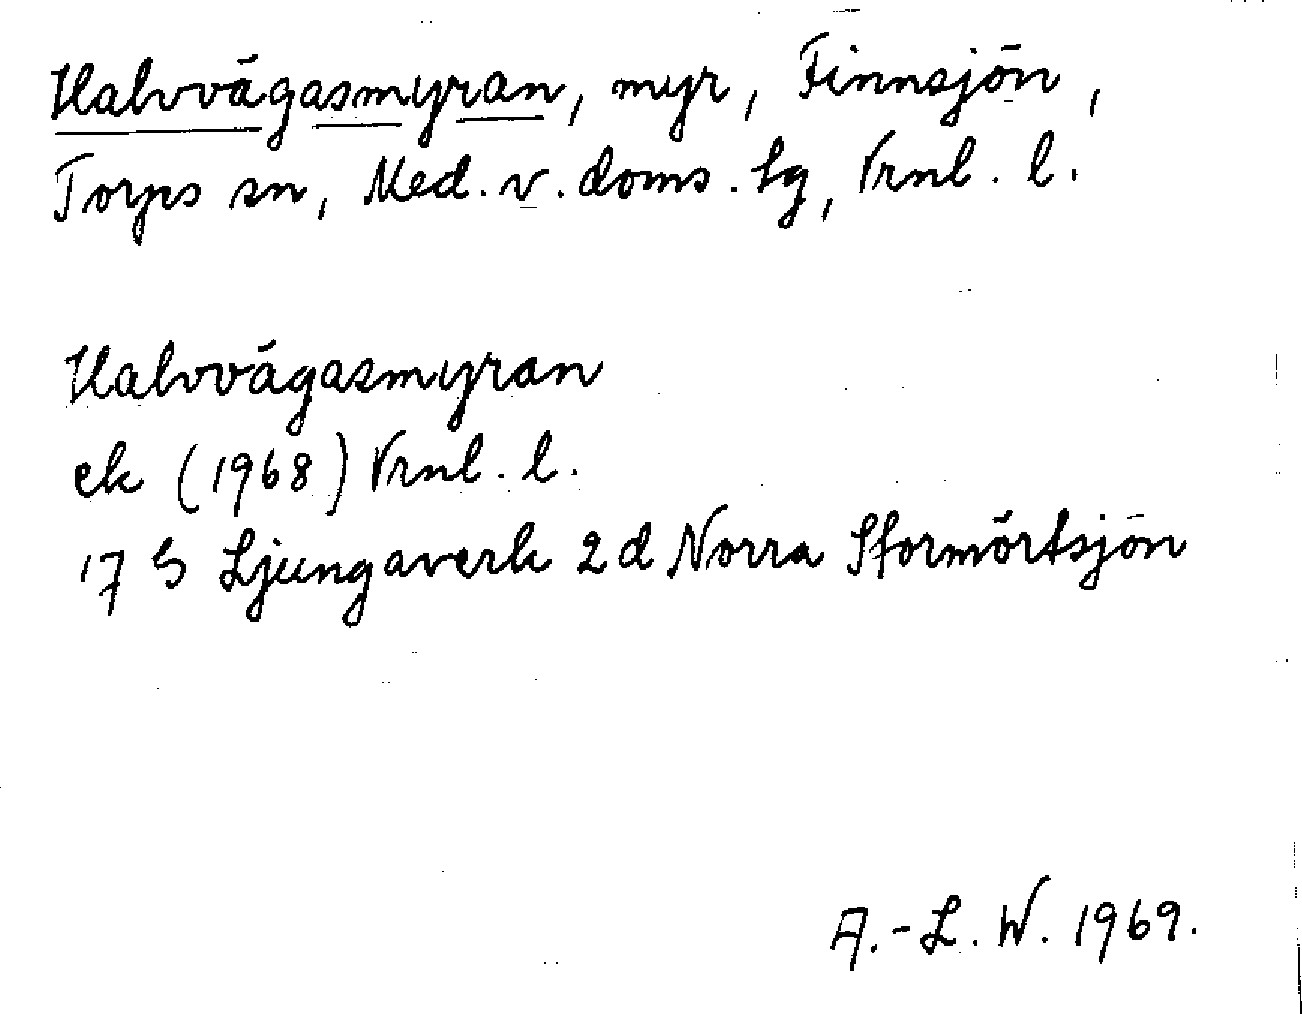 Halvvägasmyran, myr, Finnsjön,
Torps sn, Med. v. doms. tg, Vrnl. l.
Halvvägasmyran
ek (1968) Vrnl. l.
17 G Ljungaverk 2 d Norra Stormörtsjön
A.-L. W. 1969.